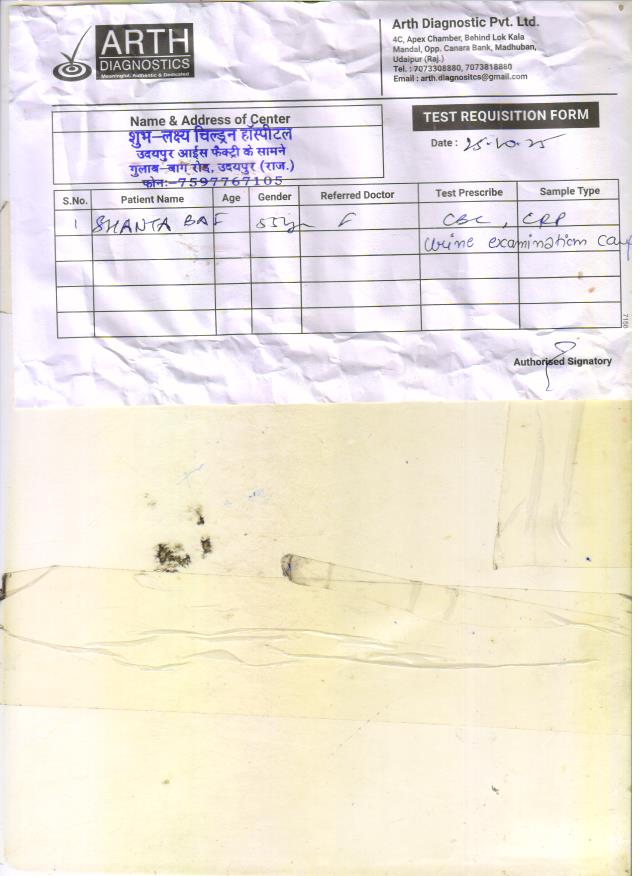 ARTH
DIAGNOSTICS
Meaningful, Authentic & Dedicated
Arth Diagnostic Pvt. Ltd.
4C, Apex Chamber, Behind Lok Kala
Mandal, Opp. Canara Bank, Madhuban,
Udaipur (Raj.)
Tel. : 7073308880, 7073818880
Email : arth.diagnositcs@gmail.com
Name & Address of Center
शुभ-लक्ष्य चिल्ड्रन हॉस्पीटल
उदयपुर आईस फैक्ट्री के सामने
गुलाब-बाग रोड, उदयपुर (राज.)
फोनः-7597767105
TEST REQUISITION FORM
Date : 25-10-25
S.No. Patient Name Age Gender Referred Doctor Test Prescribe Sample Type
1 SHANTA BAI 55y F CBC, CRP
Urine examination
7166
Authorised Signatory